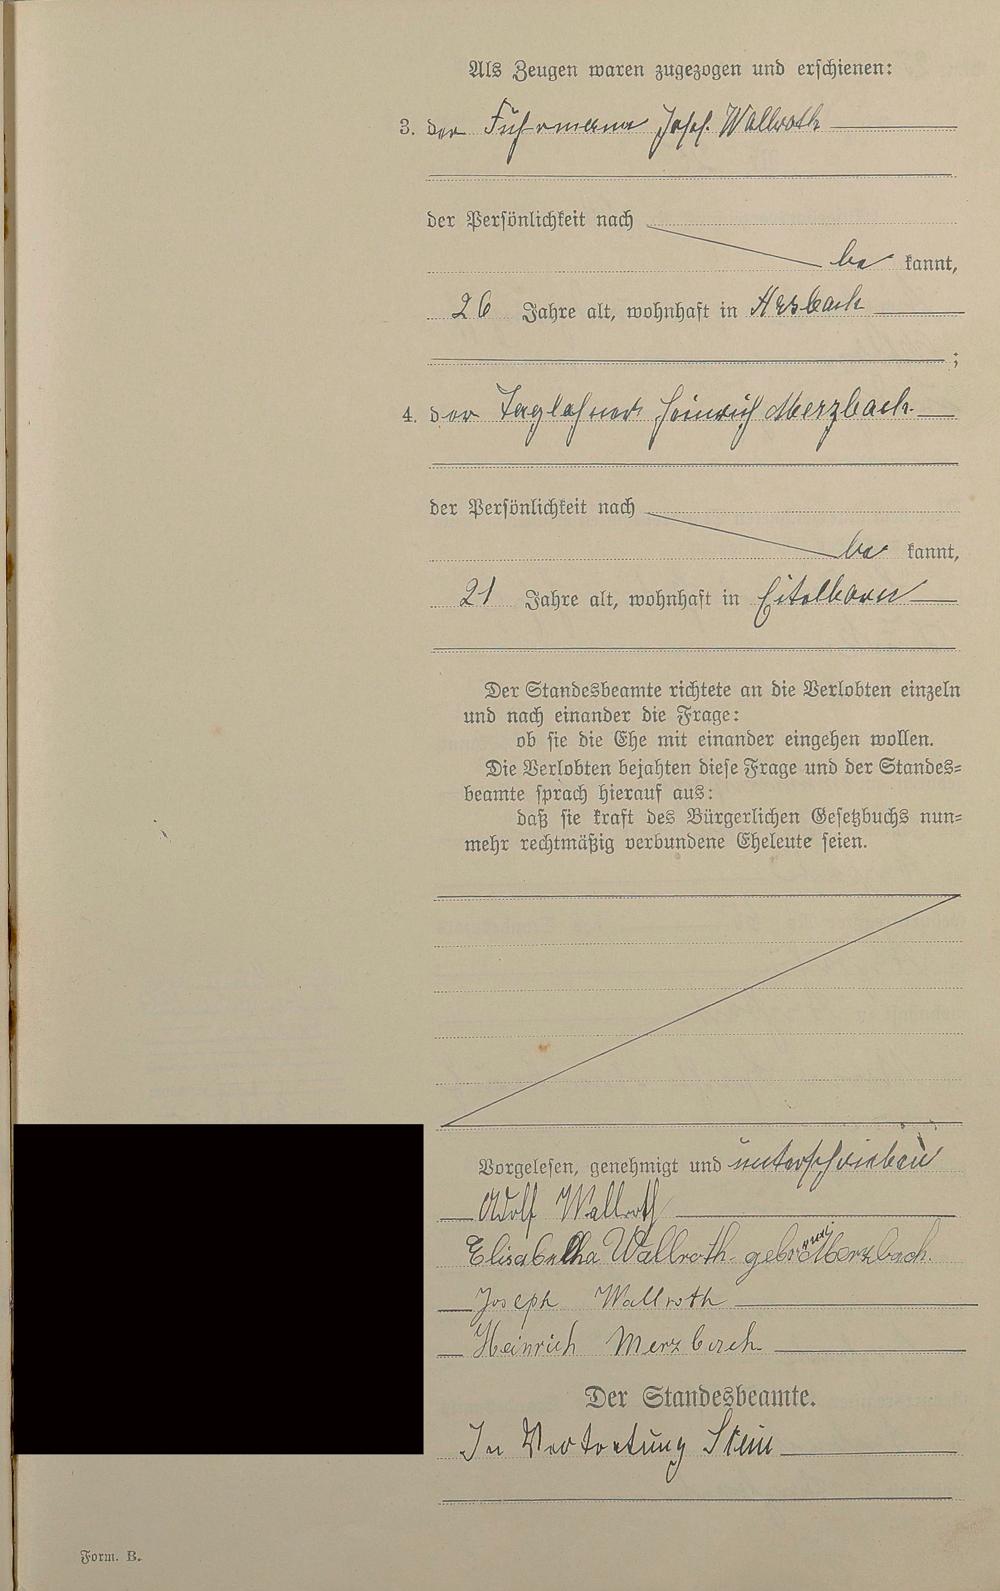 Als Zeugen waren zugezogen und erschienen:
3. der Fuhrmann Josef Wallroth
der Persönlichkeit nach
be kannt,
26 Jahre alt, wohnhaft in Arzbach
;
4. der Taglöhner Heinrich Merzbach
der Persönlichkeit nach
be kannt,
21 Jahre alt, wohnhaft in Eitelborn
Der Standesbeamte richtete an die Verlobten einzeln
und nach einander die Frage:
ob sie die Ehe mit einander eingehen wollen.
Die Verlobten bejahten diese Frage und der Standes=
beamte sprach hierauf aus:
daß sie kraft des Bürgerlichen Gesetzbuchs nun=
mehr rechtmäßig verbundene Eheleute seien.
Vorgelesen, genehmigt und unterschrieben
Adolf Wallroth
Elisabetha Wallroth Merzbach.
Joseph Wallroth
Heinrich Merzbach.
Der Standesbeamte.
In Vertretung Stein
Form. B.